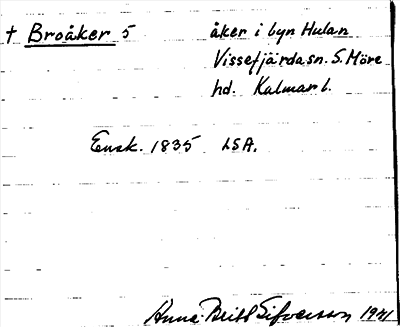 † Broåker 5 åker i byn Hulan
Vissefjärda sn. S. Möre
hd. Kalmar l.
Ensk. 1835 LSA.
Anna-Britt Sifversson 1941